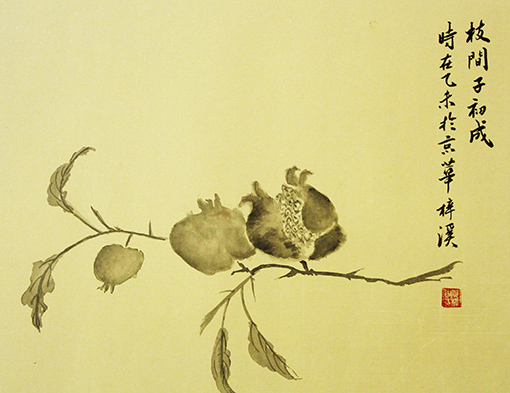 枝間子初成
時在乙未於京華梓溪